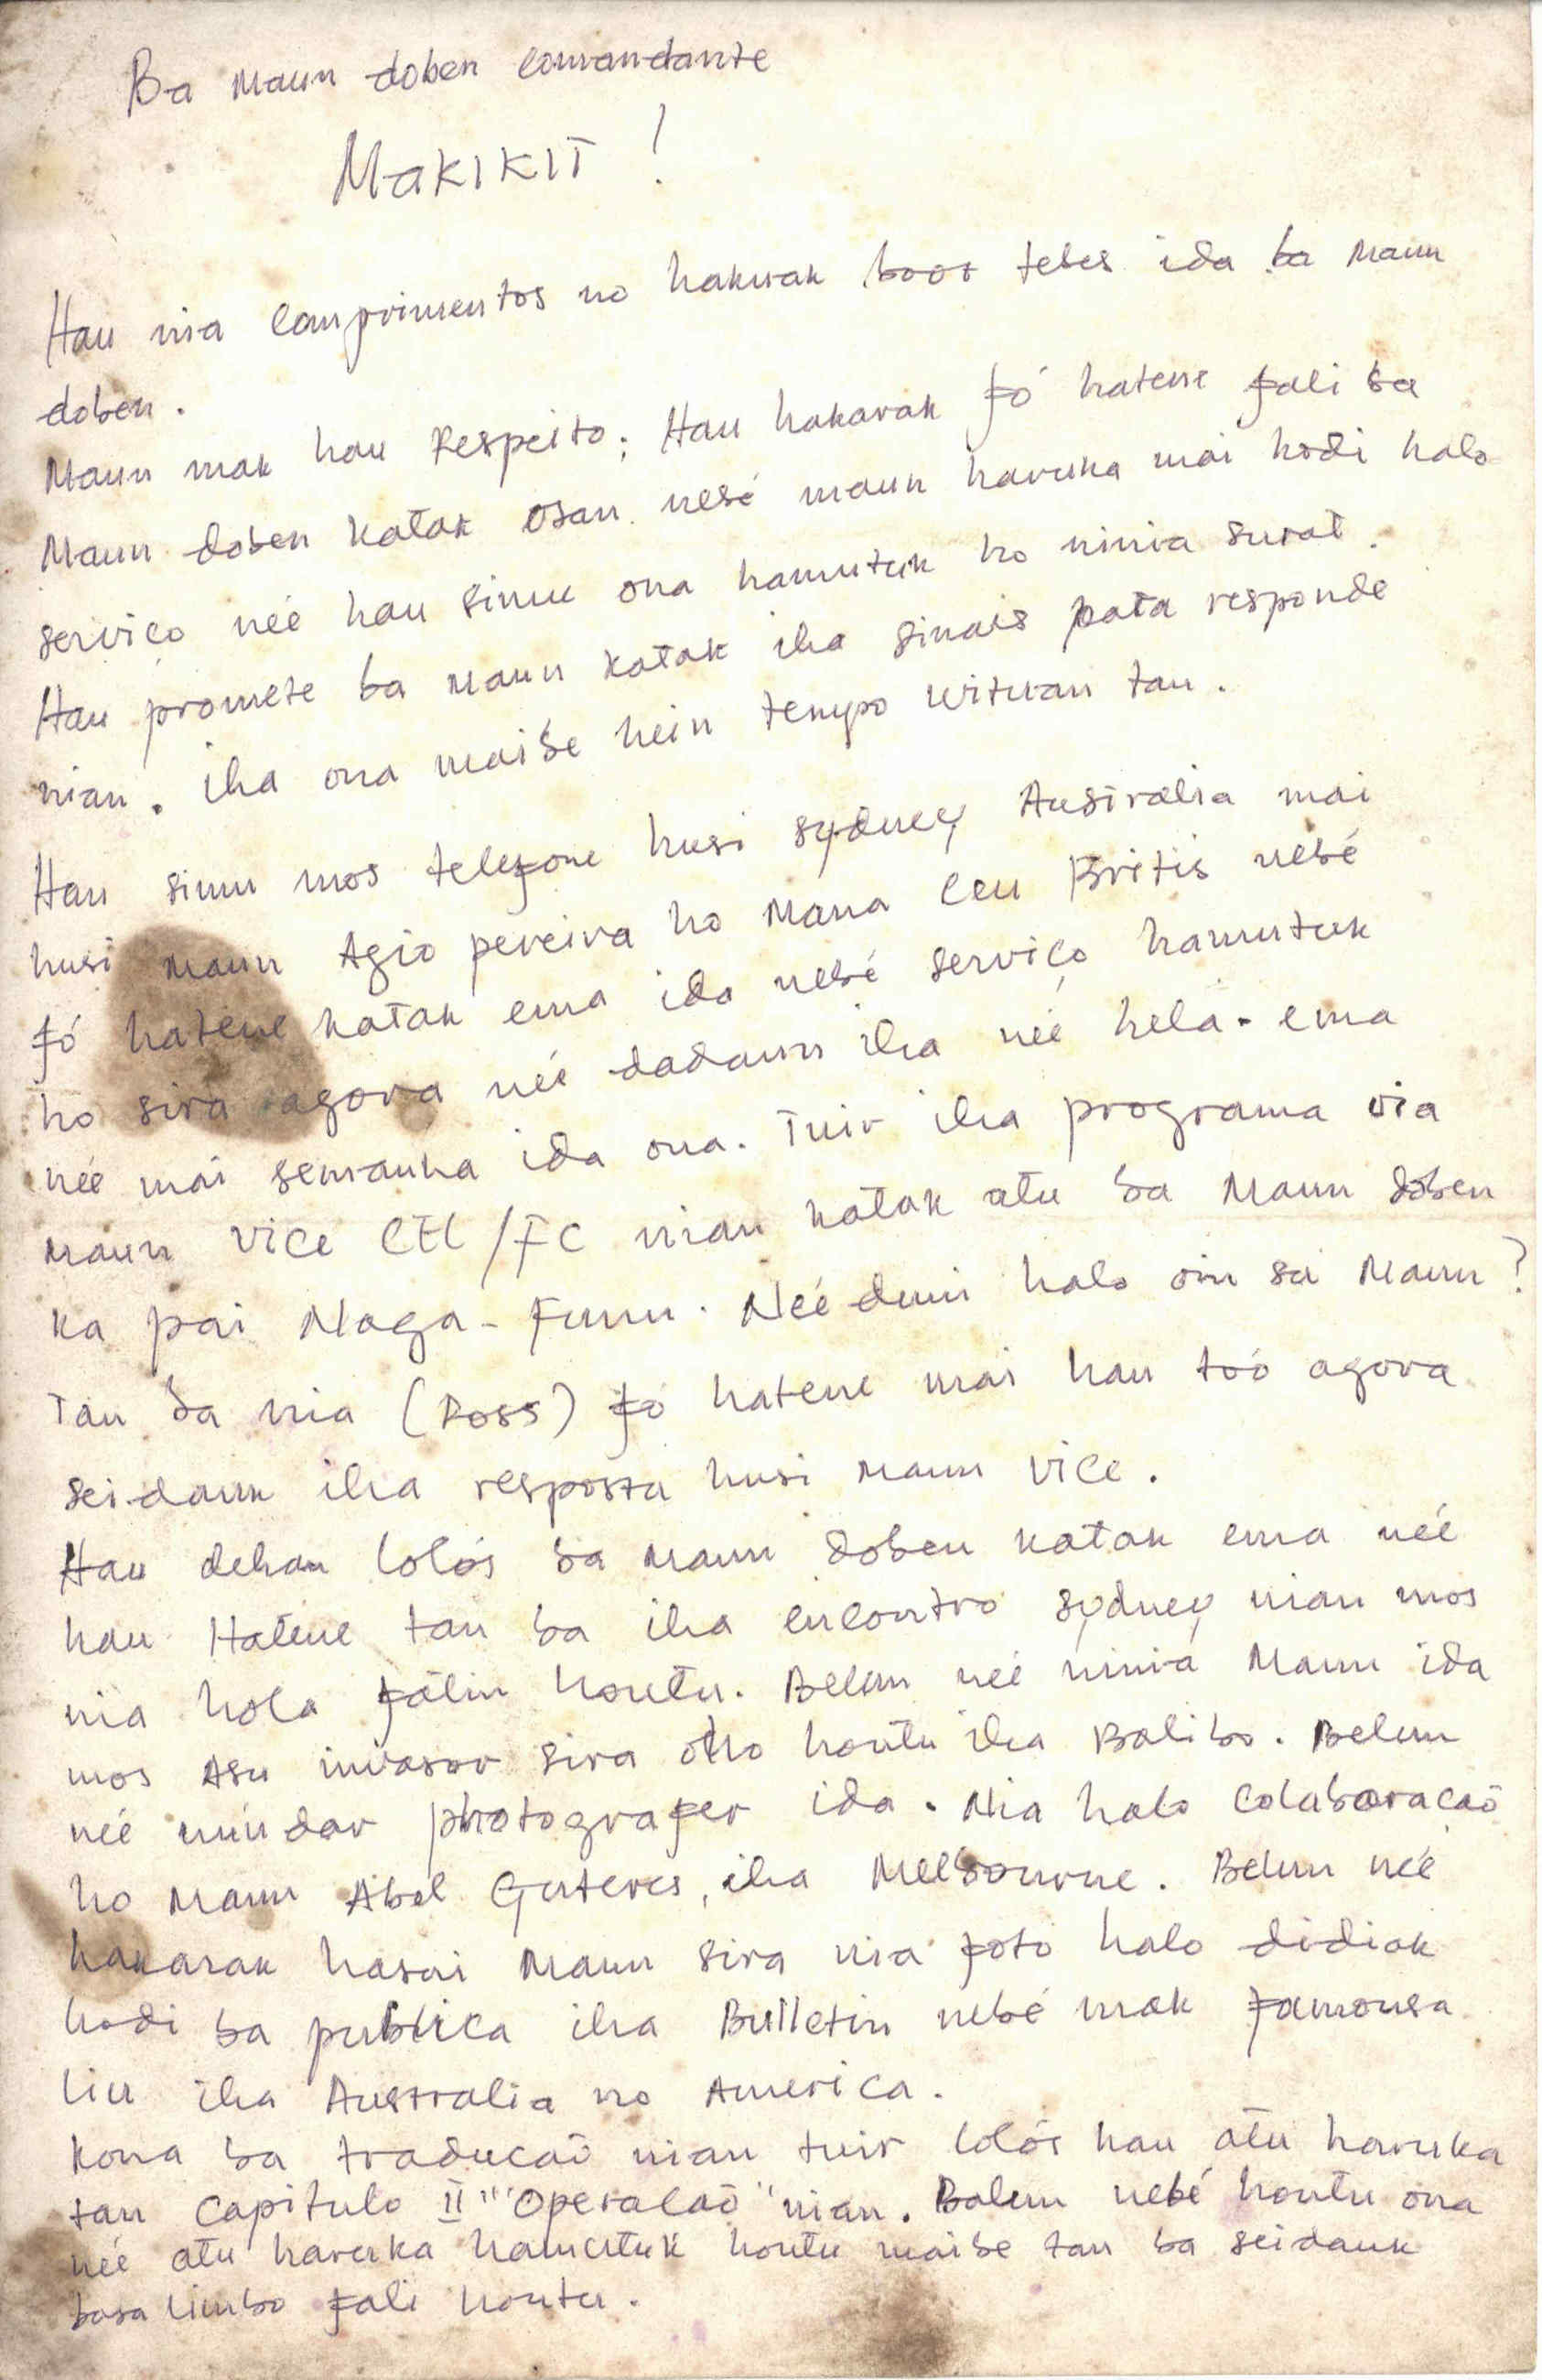 Ba Maun doben comandante
MAKIKIT !
Hau nia comprimentos no hakuak boot tebes ida ba Maun
doben.
Maun mak hau Respeito; Hau hakarak fó hatene fali ba
Maun doben katak osan nebé maun haruka mai hodi halo
serviço neé hau simu ona hamutuk ho ninia surat.
Hau promete ba Maun katak iha sinais pata responde
nian. iha ona maibe hein tempo uituan tan.
Hau simu mos telefone husi sydney Australia mai
husi Maun Agio pereira ho Mana Ceu Britis nebé
fó hatene katak ema ida nebé serviço hamutuk
ho sira agora neé dadaun iha neé hela. ema
neé mai semanha ida ona. Tuir iha programa via
Maun vice CEL/FC nian katak atu ba Maun doben
ka pai Naga-Funu. Neé duni halo oin sa Maun?
Tan ba nia (Ross) fó hatene mai hau toó agora
sei-dauk iha resposta husi Maun vice.
Hau dehan lolós ba Maun doben katak ema neé
hau Hatene tan ba iha encontro sydney nian mos
nia hola fatin hontu. Belun neé ninia Maun ida
mos Asu invasor sira oho hontu iha Balibo. Belun
neé nuúdar photografer ida. Nia halo Colaboraçaõ
ho Maun Abel Guteres, iha Melbourne. Belun neé
hakarak hasai Maun sira nia foto halo didiak
hodi ba publica iha Bulletin nebé mak famousa
liu iha Australia no America.
Kona ba traduçaõ nian tuir lolós hau atu haruka
tan Capitulo II "Operaçaõ" nian. Balun nebé hontu ona
neé atu haruka hamutuk hontu maibe tan ba seidauk
basa limbo fali hontu.